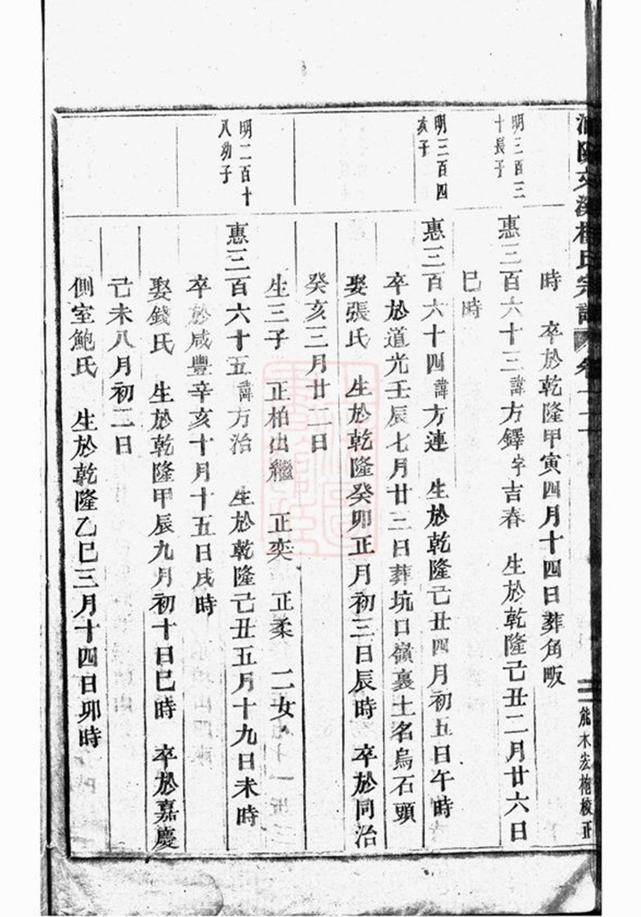 時 卒於乾隆甲寅四月十四日葬角畈
明三百三
十長子
惠三百六十三諱方鐸字吉春 生於乾隆己丑二月廿六日
巳時
明三百四
亥子
惠三百六十四諱方連 生於乾隆己丑四月初五日午時
卒於道光壬辰七月廿三日葬坑口嶺裏土名烏石頭
娶張氏 生於乾隆癸卯正月初三日辰時 卒於同治
癸亥三月廿二日
生三子 正柏出繼 正奕 正柔 二女
明二百十
八幼子
惠三百六十五諱方治 生於乾隆己丑五月十九日未時
卒於咸豐辛亥十月十五日戌時
娶錢氏 生於乾隆甲辰九月初十日巳時 卒於嘉慶
己未八月初二日
側室鮑氏 生於乾隆乙巳三月十四日卯時